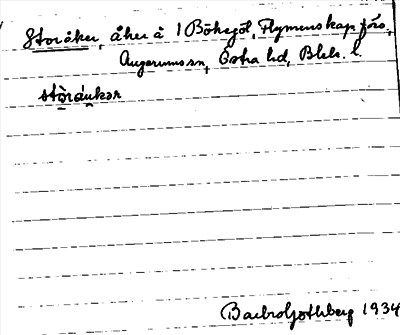 Storåker, åker å 1 Böksjöl, Flymens kap.förs.,
Augerums sn, Östra hd, Blek. l.
stòráukər
Barbro Gothberg 1934